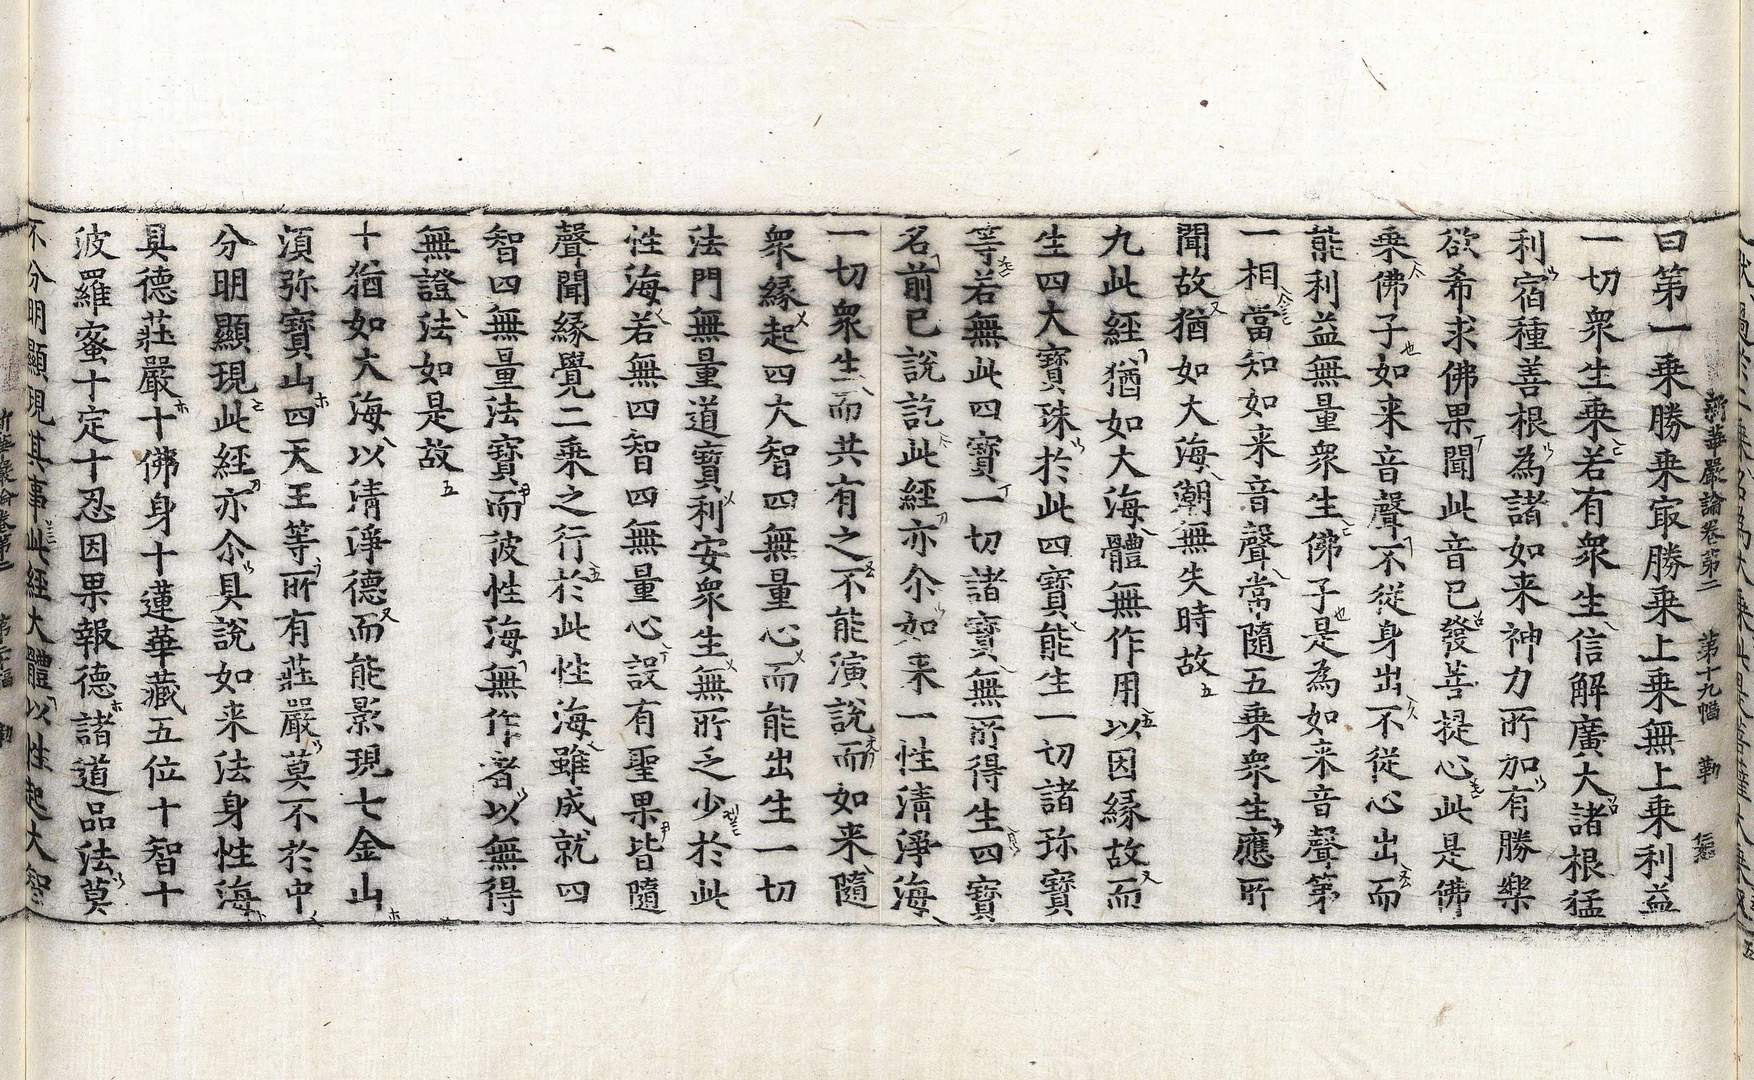 新華嚴論卷第二　第十九幅　勒
曰第一乗勝乗㝡勝乗上乗無上乗利益
一切衆生乗若有衆生信解廣大諸根猛
利宿種善根為諸如来神力所加有勝樂
欲希求佛果聞此音已發菩提心此是佛
乗佛子如来音聲不従身出不従心出而
能利益無量衆生佛子是為如来音聲第
一相當知如来音聲常隨五乗衆生應所
聞故猶如大海潮無失時故
九此經猶如大海體無作用以因緣故而
生四大寶珠於此四寶能生一切諸珎寶
等若無此四寶一切諸寶無所得生四寶
名前已說訖此經亦尒如来一性清淨海
一切衆生而共有之不能演說而如来隨
衆緣起四大智四無量心而能出生一切
法門無量道寶利安衆生無所乏少於此
性海若無四智四無量心設有聖果皆隨
聲聞緣覺二乗之行於此性海雖成就四
智四無量法寶而彼性海無作者以無得
無證法如是故
十猶如大海以清淨德而能影現七金山
湏弥寶山四天王等所有莊嚴莫不於中
分明顯現此經亦尒具說如来法身性海
具德莊嚴十佛身十蓮華藏五位十智十
波羅蜜十定十忍因果報德諸道品法莫
不分明顯現其事此經大體以性起大智